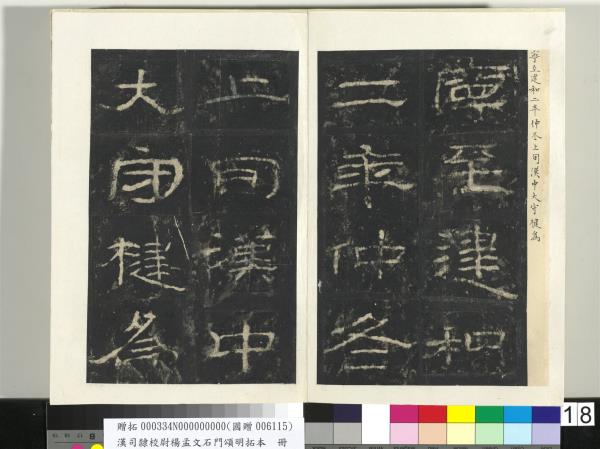 寧至建和二年仲冬上旬漢中大守楗為
寧至建和
二年仲冬
上旬漢中
大守楗為
贈拓 000334N000000000(國贈 006115)
漢司隸校尉楊孟文石門頌明拓本 冊
18